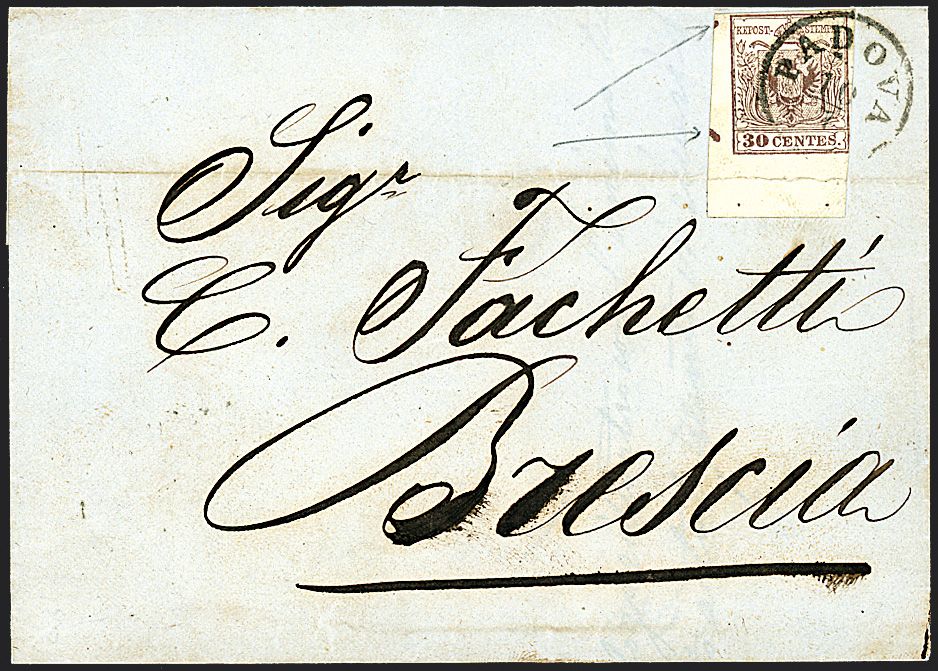 KKPOST-STEMPEL
30 CENTES.
PADOVA
Sigr
C. Fachetti
Brescia